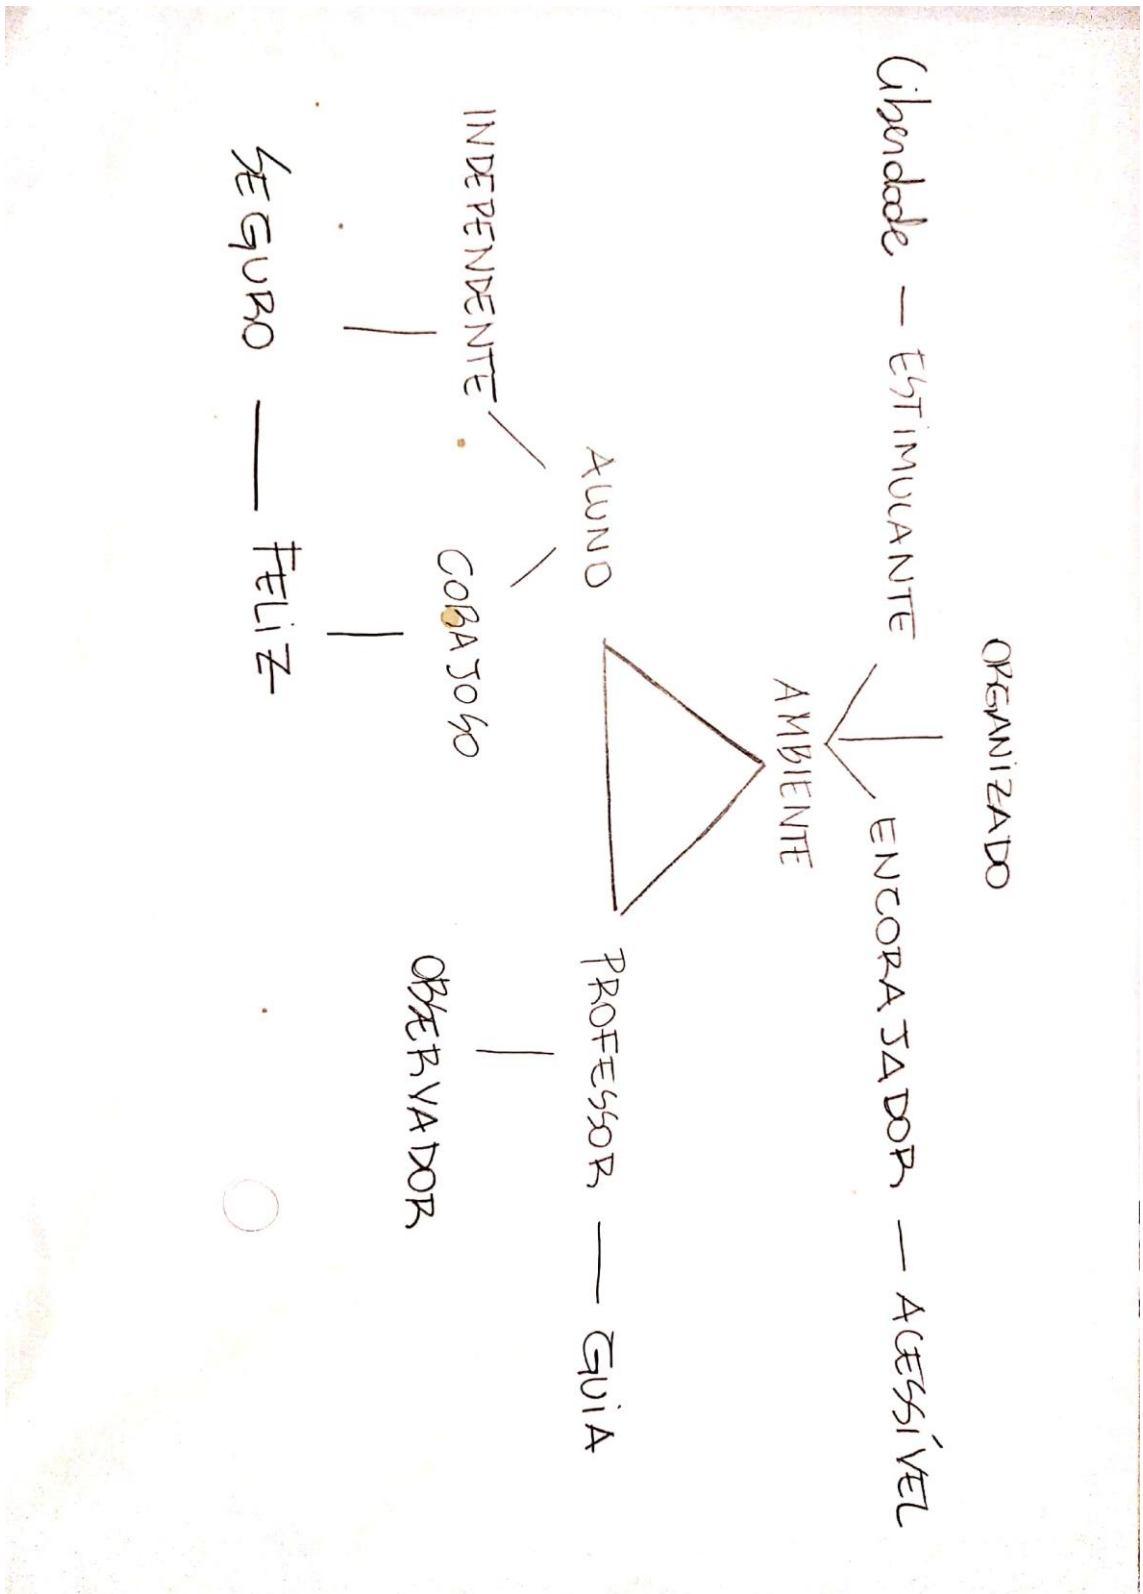 ORGANIZADO
Liberdade — ESTIMULANTE
ENCORAJADOR — ACESSÍVEL
AMBIENTE
ALUNO
PROFESSOR — GUIA
INDEPENDENTE
CORAJOSO
OBSERVADOR
SEGURO — FELIZ